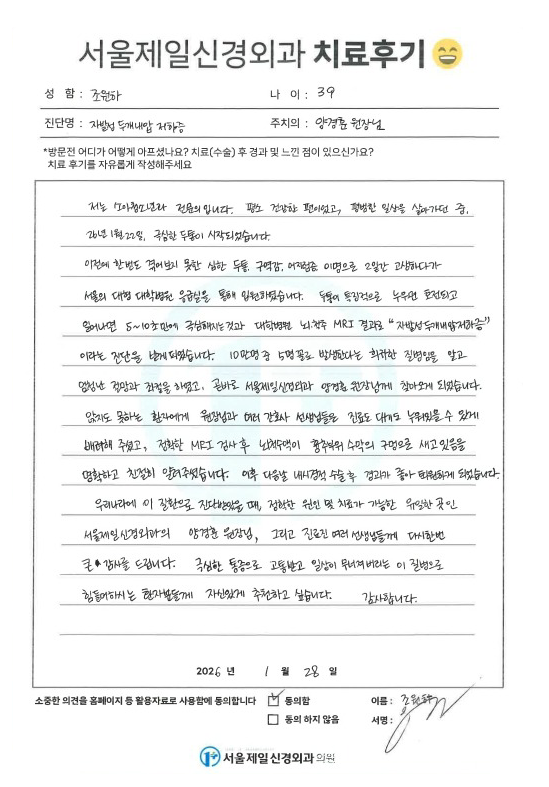 서울제일신경외과 치료후기
성 함 : 조원하 나 이 : 39
진단명 : 자발성 두개내압 저하증 주치의 : 양경훈 원장님
*방문전 어디가 어떻게 아프셨나요? 치료(수술) 후 경과 및 느낀 점이 있으신가요?
치료 후기를 자유롭게 작성해주세요
저는 소아청소년과 전문의입니다. 평소 건강한 편이었고, 평범한 일상을 살아가던 중,
26년 1월 22일, 극심한 두통이 시작되었습니다.
이전에 한번도 겪어보지 못한 심한 두통, 구역감, 어지럼증, 이명으로 2일간 고생하다가
서울의 대형 대학병원 응급실을 통해 입원하였습니다. 두통이 특징적으로 누우면 호전되고
일어나면 5~10초만에 극심해지는것과 대학병원 뇌척추 MRI 결과로 "자발성두개내압저하증"
이라는 진단을 받게되었습니다. 10만명 중 5명꼴로 발생한다는 희귀한 질병임을 알고
엄청난 절망과 좌절을 하였고, 곧바로 서울제일신경외과 양경훈 원장님께 찾아오게 되었습니다.
앉지도 못하는 환자에게 원장님과 여러 간호사 선생님들은 진료도 대기도 누워있을 수 있게
배려해 주셨고, 정확한 MRI 검사 후 뇌척수액이 흉추부위 수막의 구멍으로 새고 있음을
명확하고 친절히 알려주셨습니다. 이후 다음날 내시경적 수술 후 경과가 좋아 퇴원하게 되었습니다.
우리나라에 이 질환으로 진단받았을 때, 정확한 원인 및 치료가 가능한 유일한 곳인
서울제일신경외과의 양경훈 원장님, 그리고 진료진 여러 선생님들께 다시한번
큰 감사를 드립니다. 극심한 통증으로 고통받고 일상이 무너져버리는 이 질병으로
힘들어하시는 환자분들께 자신있게 추천하고 싶습니다. 감사합니다.
2026 년 1 월 28 일
소중한 의견을 홈페이지 등 활용자료로 사용함에 동의합니다 동의함 이름 : 조원하
동의 하지 않음 서명 :
서울제일신경외과의원